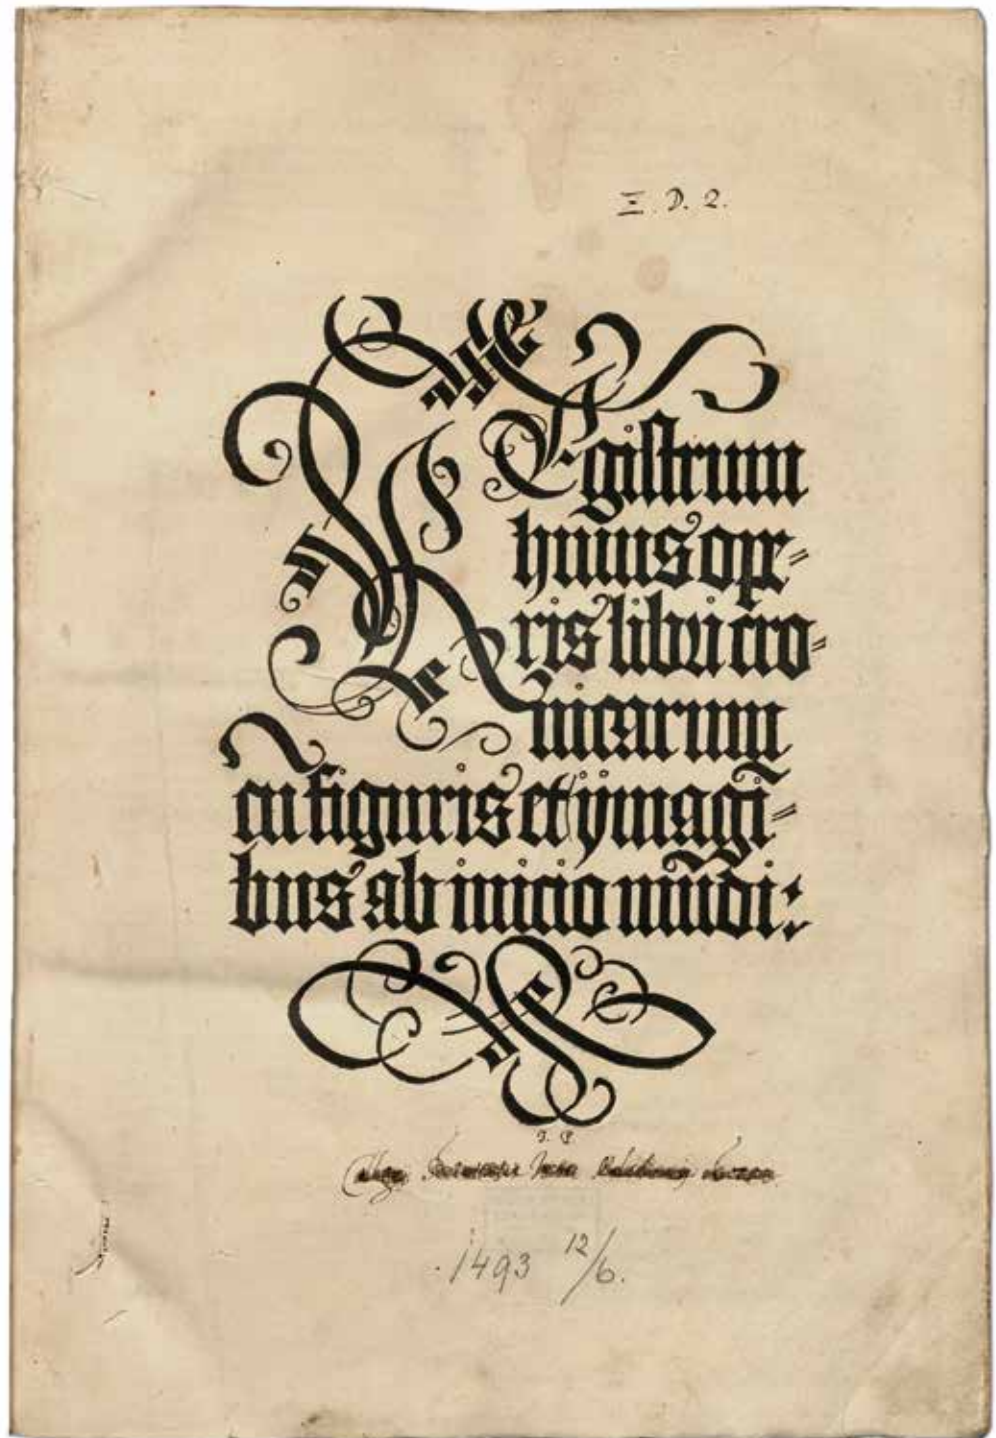 Ξ. D. 2.
REgistrum
huius ope=
ris libri cro=
nicarum
cũ figuris et ÿmagĩ=
bus ab inicio mũdi:
1493 12/6.